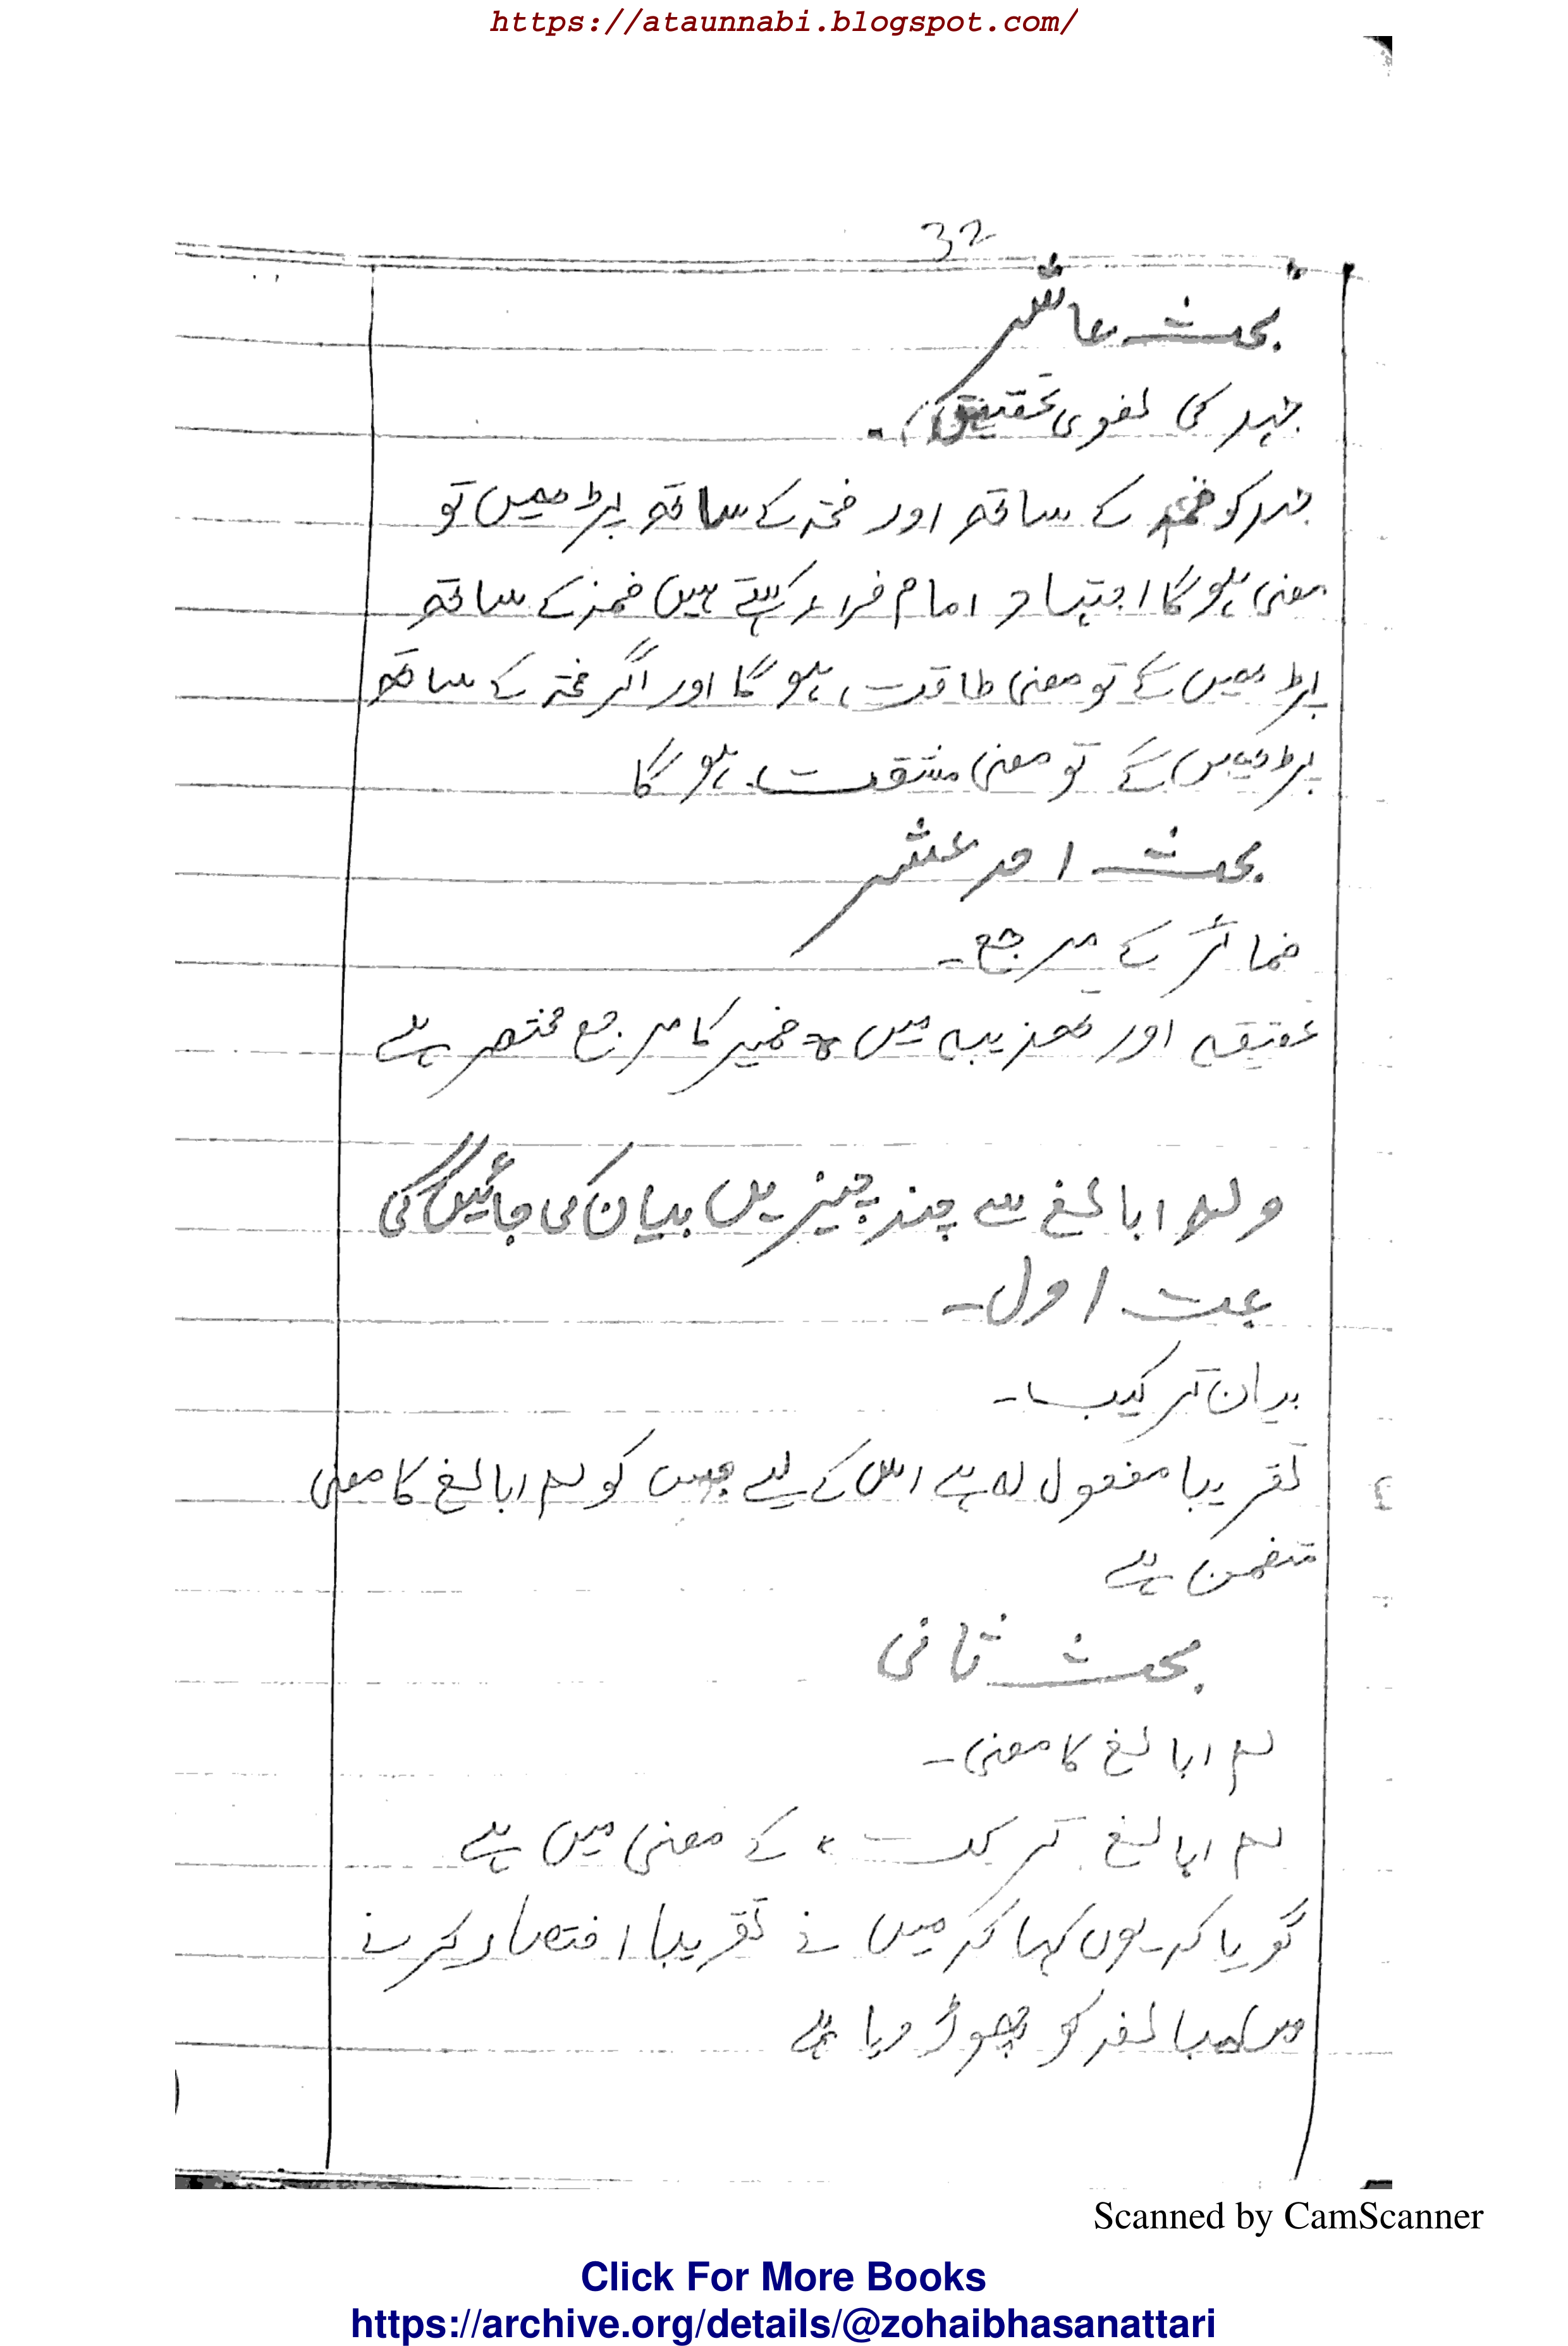 https://ataunnabi.blogspot.com/
32
بحث عاشر
جہد کی لغوی تحقیق۔
جہد کو ضمہ کے ساتھ اور فتحہ کے ساتھ پڑھیں تو
معنی ہوگا اجتہاد امام فراء کہتے ہیں ضمہ کے ساتھ
پڑھیں گے تو معنی طاقت ہوگا اور اگر فتحہ کے ساتھ
پڑھیں گے تو معنی مشقت ہوگا
بحث احد عشر
ضمائر کے مرجع۔
تحقیقہ اور تھذیبہ میں ہ ضمیر کا مرجع مختصر ہے
ولم ابالغ سے چند چیزیں بیان کی جائیں گی
بحث اول۔
بیان ترکیب۔
تقریبا مفعول لہ ہے اس کے لیے جس کو لم ابالغ کا معنی
متضمن ہے
بحث ثانی
لم ابالغ کا معنی۔
لم ابالغ ترکت کے معنی میں ہے
گویا کہ یوں کہا کہ میں نے تقریبا اختصار کرنے
میں مبالغہ کو چھوڑ دیا ہے
Scanned by CamScanner
Click For More Books
https://archive.org/details/@zohaibhasanattari